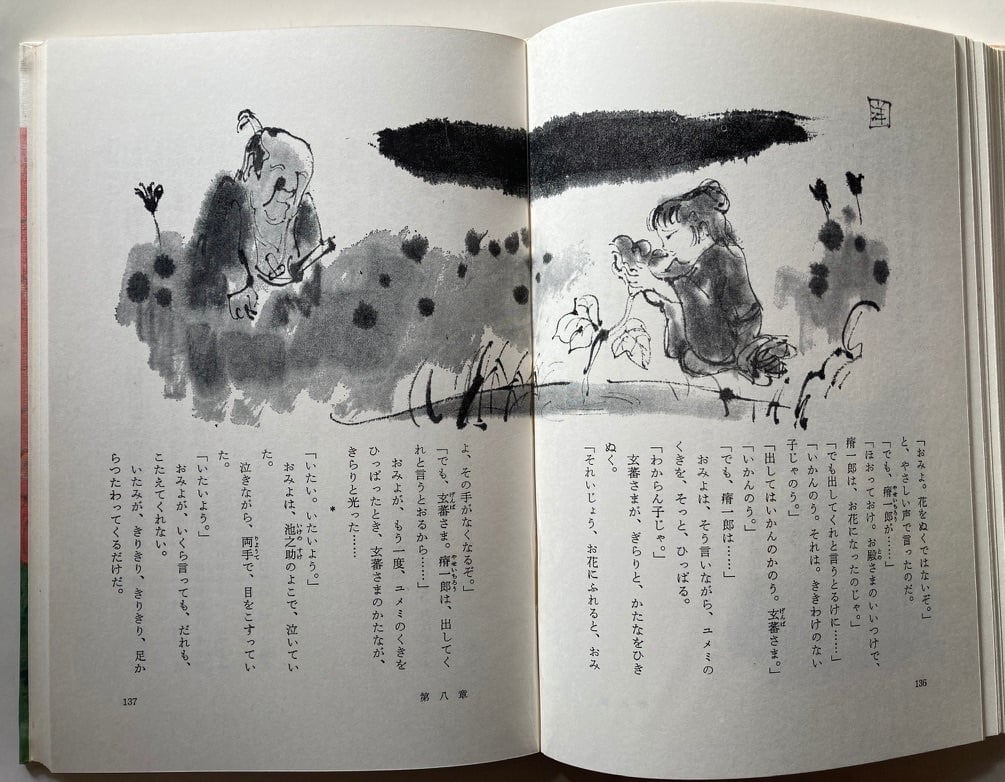 「おみよ。花をぬくではないぞ。」
と、やさしい声で言ったのだ。
「でも、瘠一郎が……」
「ほおっておけ。お殿さまのいいつけで、
瘠一郎は、お花になったのじゃ。」
「でも出してくれと言うとるけに……」
「いかんのう。それは。ききわけのない
子じゃのう。」
「出してはいかんのかのう。玄蕃さま。」
「いかんのう。」
「でも、瘠一郎は……」
おみよは、そう言いながら、ユメミの
くきを、そっと、ひっぱる。
「わからん子じゃ。」
玄蕃さまが、ぎらりと、かたなをひき
ぬく。
「それいじょう、お花にふれると、おみ
136
よ、その手がなくなるぞ。」
「でも、玄蕃さま。瘠一郎は、出してく
れと言うとおるから……」
おみよが、もう一度、ユメミのくきを
ひっぱったとき、玄蕃さまのかたなが、
きらりと光った……
*
「いたい。いたいよう。」
おみよは、池之助のよこで、泣いてい
た。
泣きながら、両手で、目をこすってい
た。
「いたいよう。」
おみよが、いくら言っても、だれも、
こたえてくれない。
いたみが、きりきり、きりきり、足か
らつたわってくるだけだ。
第八章
137